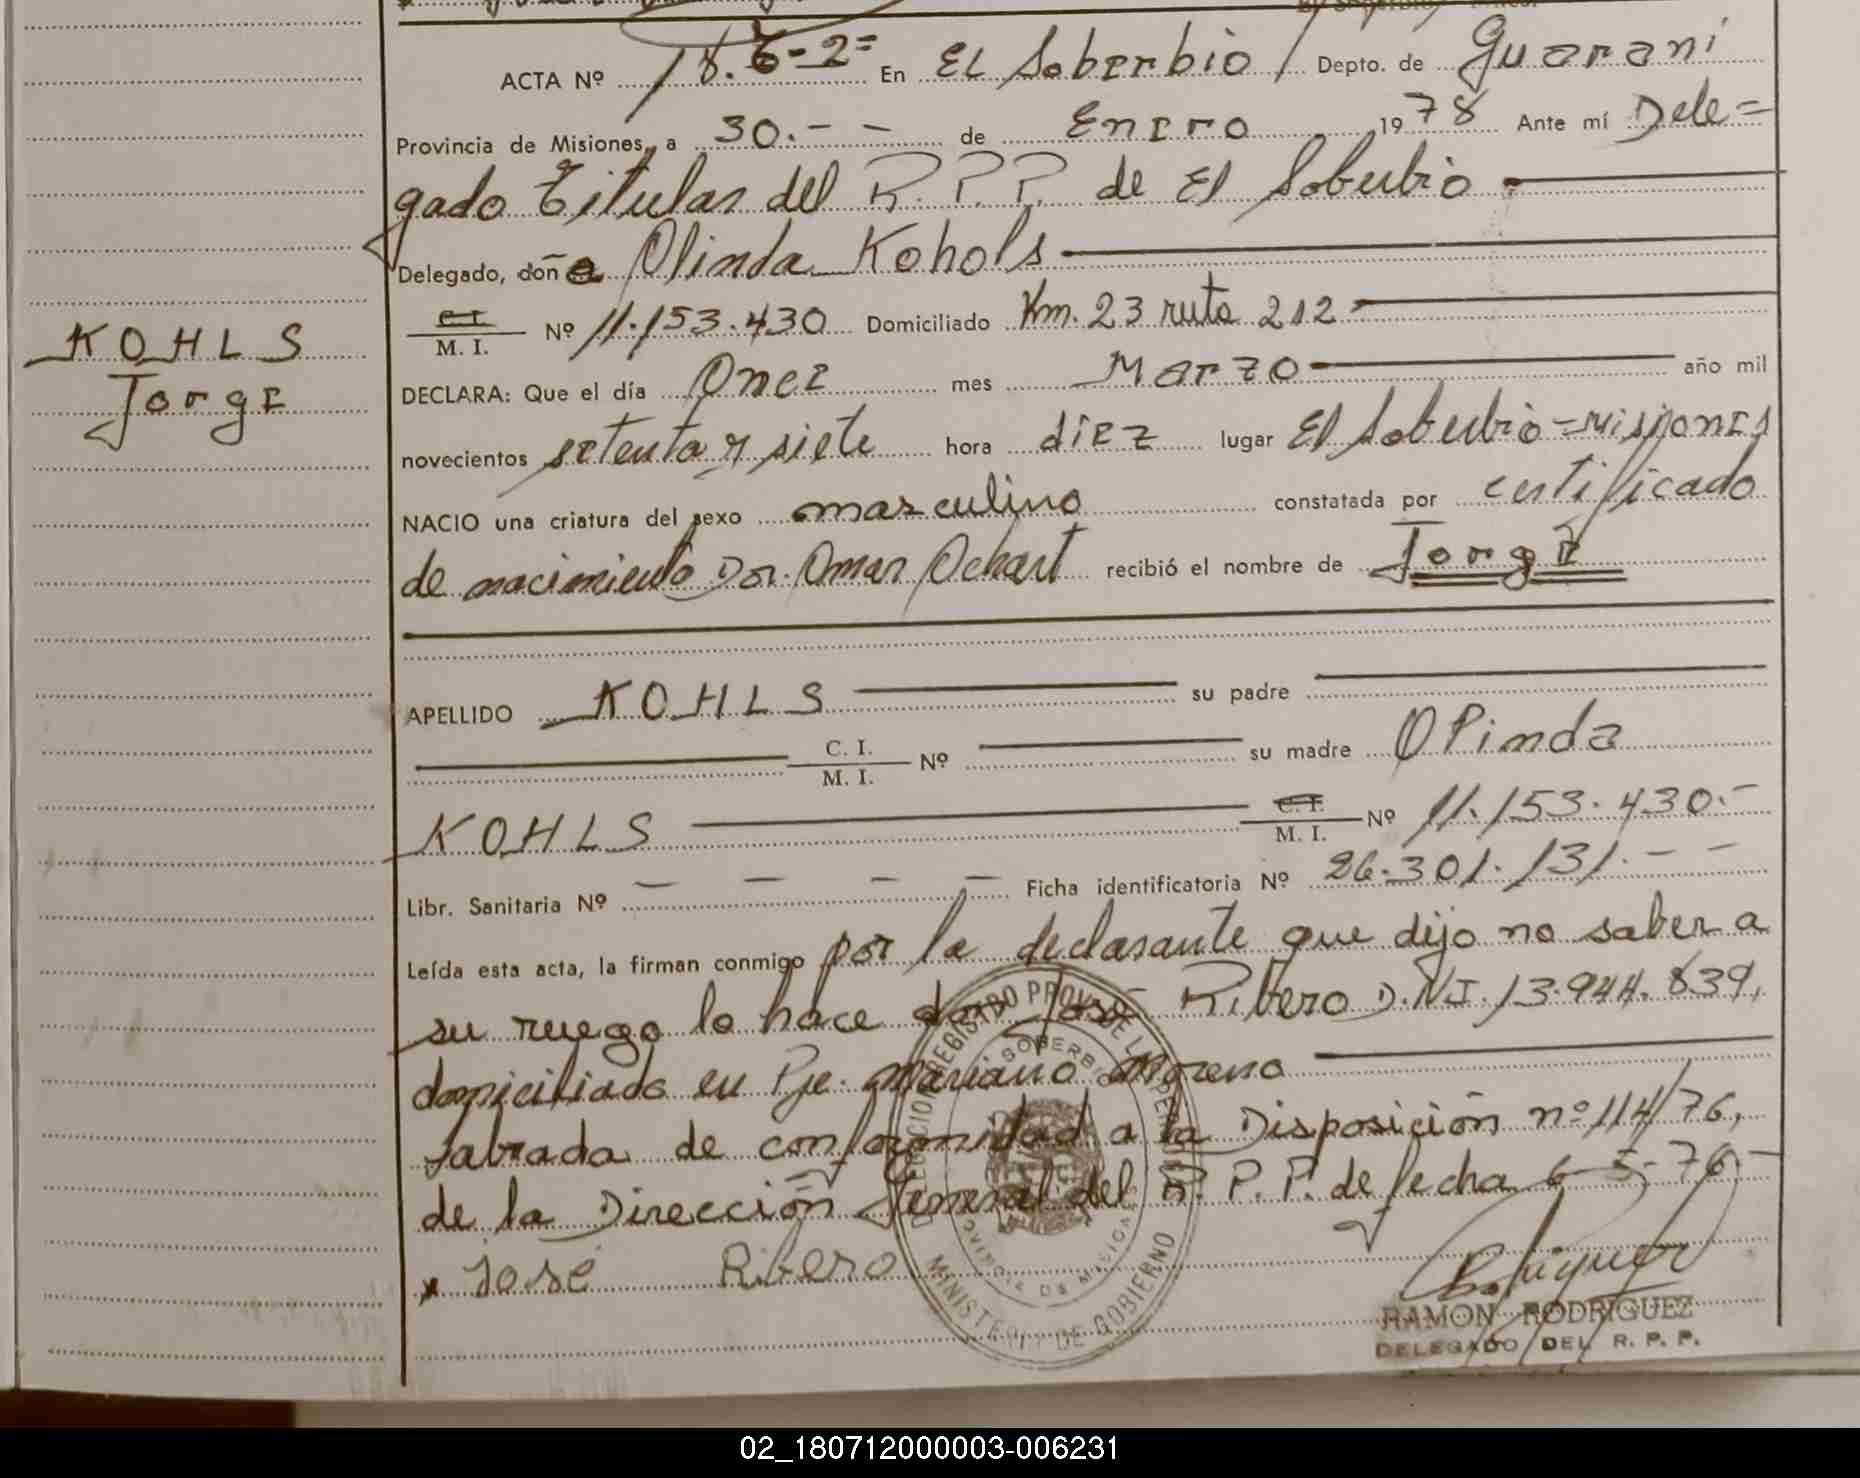 ACTA Nº 18. En El Soberbio Depto. de Guaraní
Provincia de Misiones, a 30.- - de Enero 1978 Ante mí Dele=
gado Titular del R.P.P. de El Soberbio
Delegado, doña Olinda Kohols
C.I. M. I. Nº 11.153.430 Domiciliado Km. 23 ruta 212
KOHLS
Jorge
DECLARA: Que el día Once mes Marzo año mil
novecientos setenta y siete hora diez lugar El Soberbio=Misiones
NACIO una criatura del sexo masculino constatada por certificado
de nacimiento Dr. Omar Ochart recibió el nombre de Jorge
APELLIDO KOHLS su padre
C. I. M. I. Nº su madre Olinda
KOHLS C. I. M. I. Nº 11.153.430.-
Libr. Sanitaria Nº - - - - Ficha identificatoria Nº 26.301.131.- -
Leída esta acta, la firman conmigo por la declarante que dijo no saber a
su ruego lo hace don José Ribero D.N.I. 13.944.839,
domiciliado en Pje. Mariano Moreno
labrada de conformidad a la Disposición nº 114/76,
de la Dirección General del R. P. P. de fecha 6-5-76.-
x José Ribero
DELEGACION REGISTRO PROV. DE LAS PERSONAS
SOBERBIO
PROVINCIA DE MISIONES
MINISTERIO DE GOBIERNO
RAMON RODRIGUEZ
DELEGADO DEL R. P. P.
02_180712000003-006231